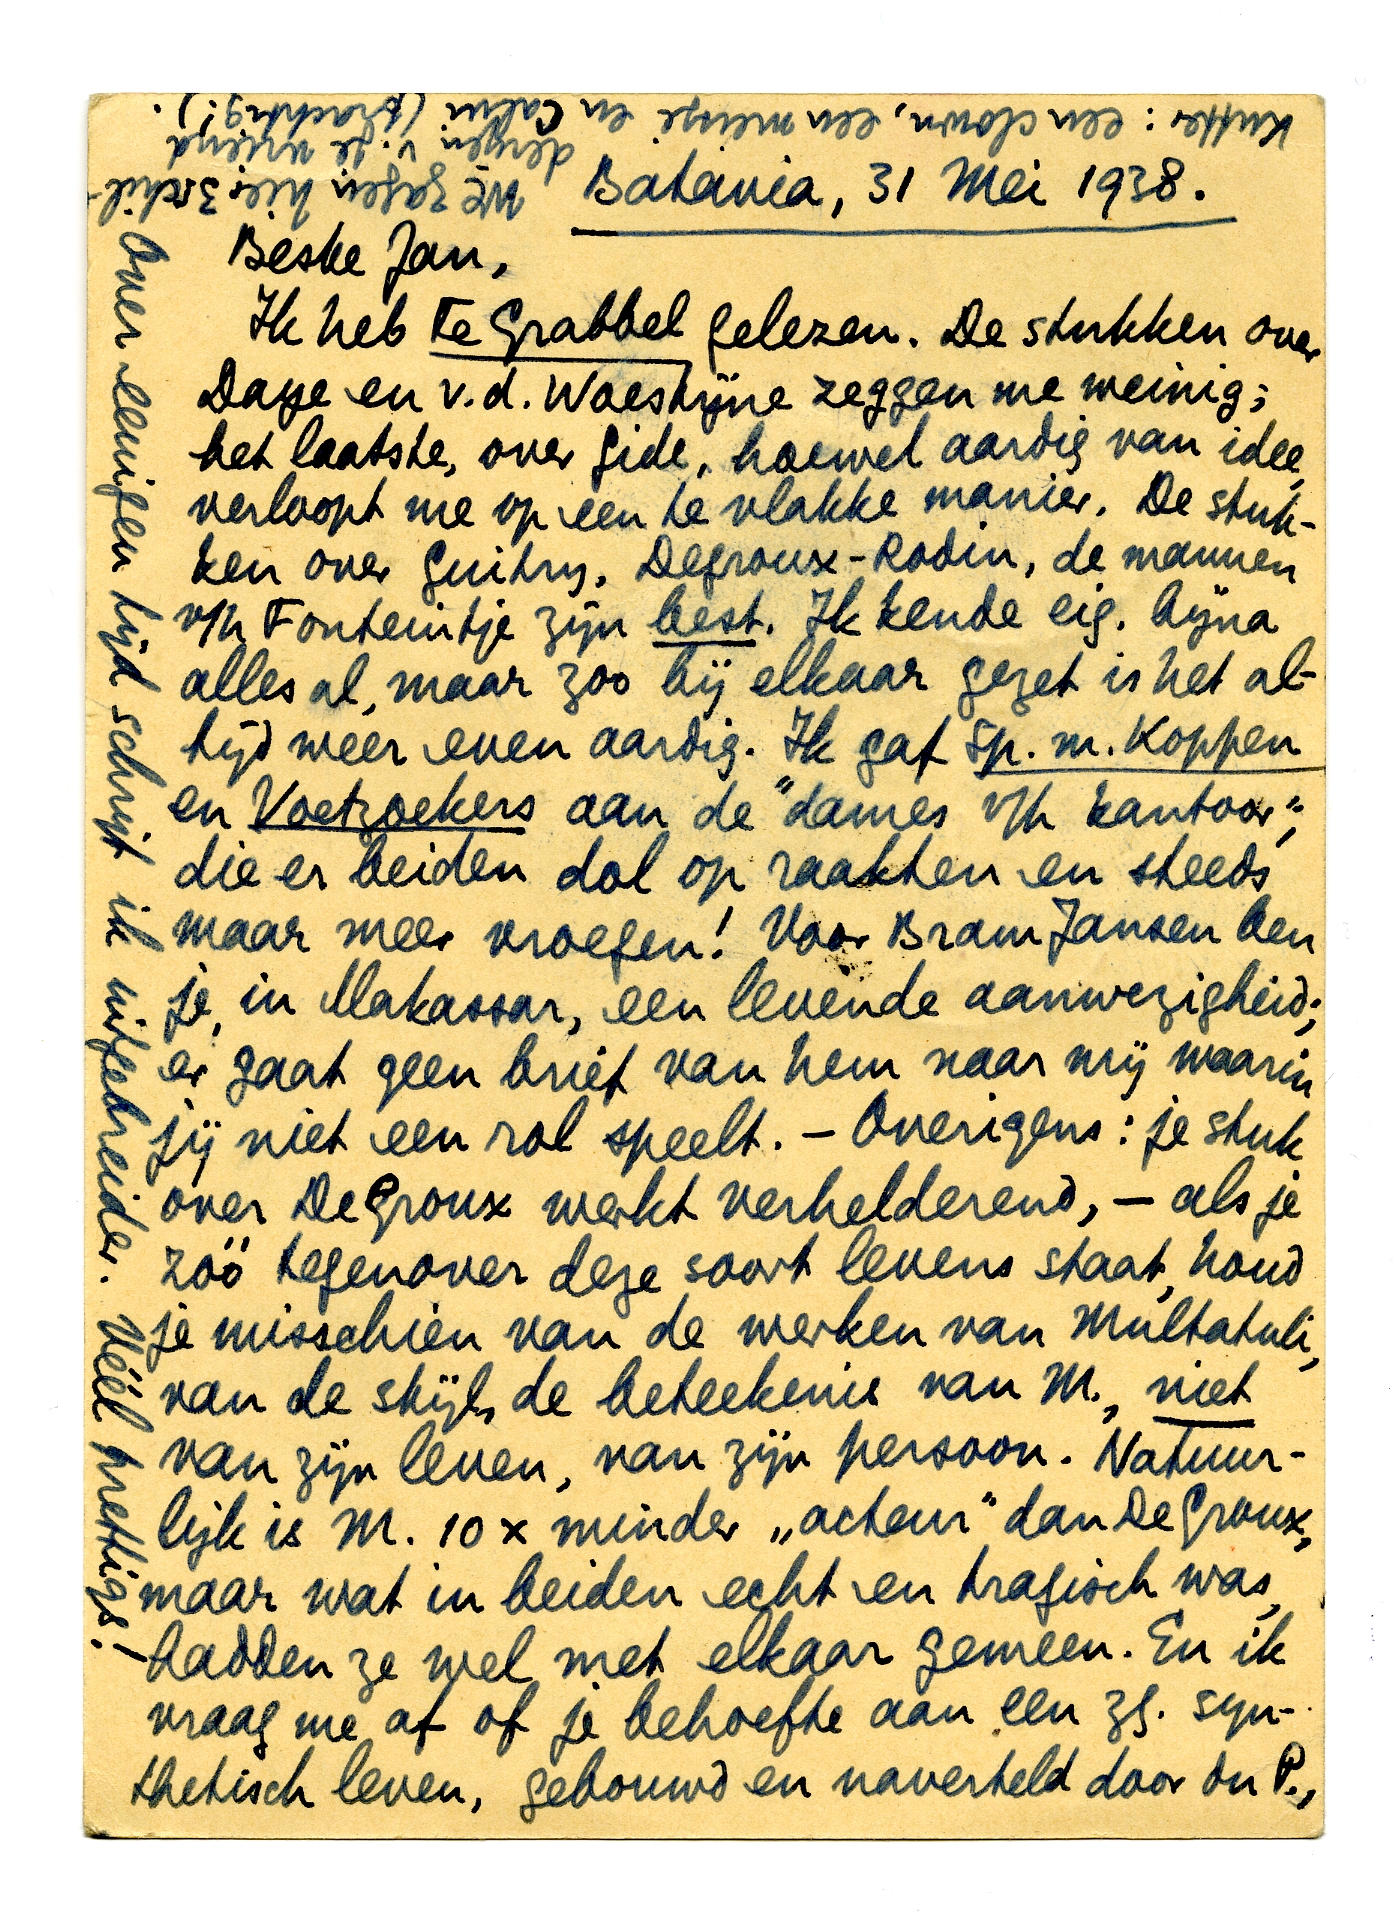 Batavia, 31 Mei 1938.
Beste Jan,
Ik heb Te Grabbel gelezen. De stukken over
Daye en v.d. Woestijne zeggen me weinig;
het laatste, over Gide, hoewel aardig van idee,
verloopt me op een te vlakke manier. De stuk-
ken over Guitry, Degroux-Rodin, de mannen
v/h Fonteintje zijn best. Ik kende eig. bijna
alles al, maar zoo bij elkaar gezet is het al-
tijd weer even aardig. Ik gaf Sp. m. Koppen
en Voetzoekers aan de "dames v/h kantoor",
die er beiden dol op raakten en steeds
maar meer vroegen! Voor Bram Jansen ben
je, in Makassar, een levende aanwezigheid;
er gaat geen brief van hem naar mij waarin
jij niet een rol speelt. – Overigens: je stuk
over De Groux werkt verhelderend, – als je
zóó tegenover deze soort levens staat, houd
je misschien van de werken van Multatuli,
van de stijl, de beteekenis van M., niet
van zijn leven, van zijn persoon. Natuur-
lijk is M. 10 x minder „acteur" dan De Groux,
maar wat in beiden echt en tragisch was,
hadden ze wel met elkaar gemeen. En ik
vraag me af of je behoefte aan een zg. syn-
thetisch leven, gebouwd en naverteld door du P.,
Over eenigen tijd schrijf ik uitgebreider. Véél prettigs!
We zagen hier 3 schil-
derijen v. je vriend
Kutter: een clown, een meisje en Calui (prachtig!).